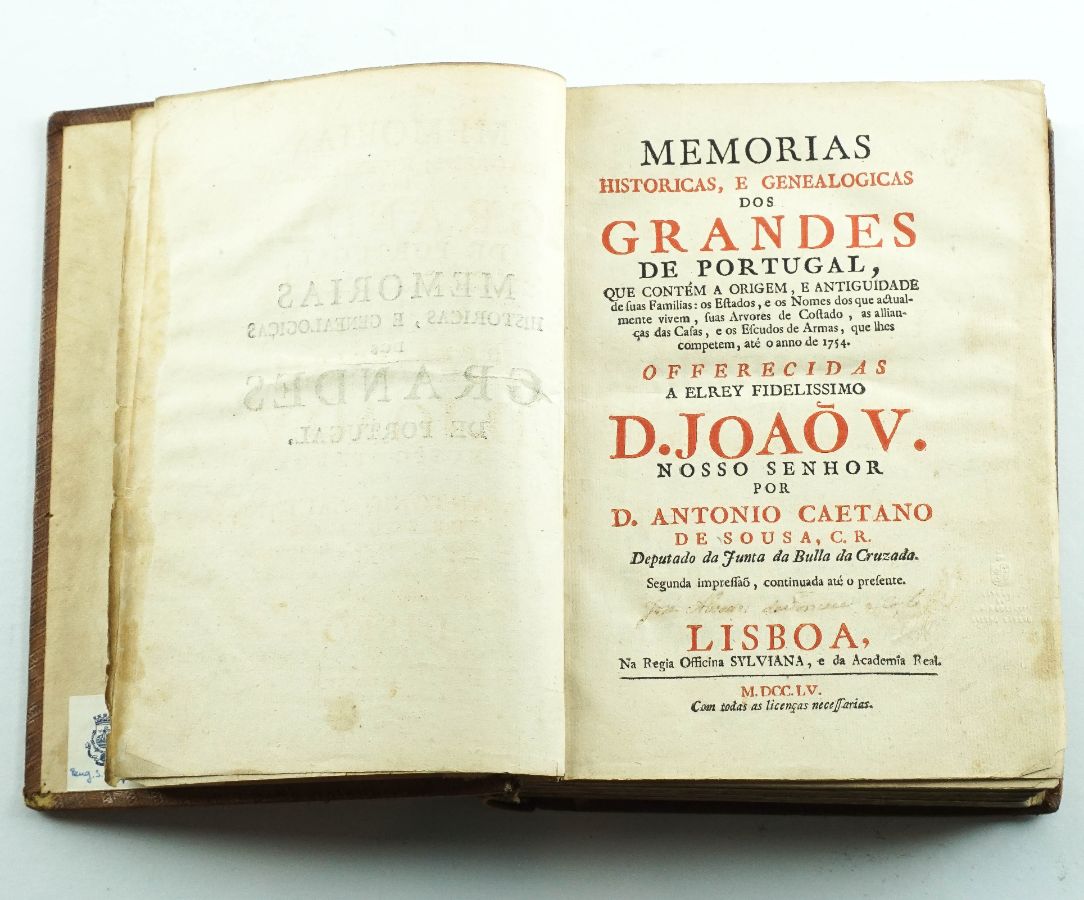 MEMORIAS
HISTORICAS, E GENEALOGICAS
DOS
GRANDES
DE PORTUGAL,
QUE CONTÉM A ORIGEM, E ANTIGUIDADE
de suas Familias: os Eſtados, e os Nomes dos que actual-
mente vivem, ſuas Arvores de Coſtado, as allian-
ças das Caſas, e os Eſcudos de Armas, que lhes
competem, até o anno de 1754.
OFFERECIDAS
A ELREY FIDELISSIMO
D. JOAÕ V.
NOSSO SENHOR
POR
D. ANTONIO CAETANO
DE SOUSA, C. R.
Deputado da Junta da Bulla da Cruzada.
Segunda impreſſaõ, continuada até o preſente.
LISBOA,
Na Regia Officina SYLVIANA, e da Academia Real.
M. DCC. LV.
Com todas as licenças neceſſarias.